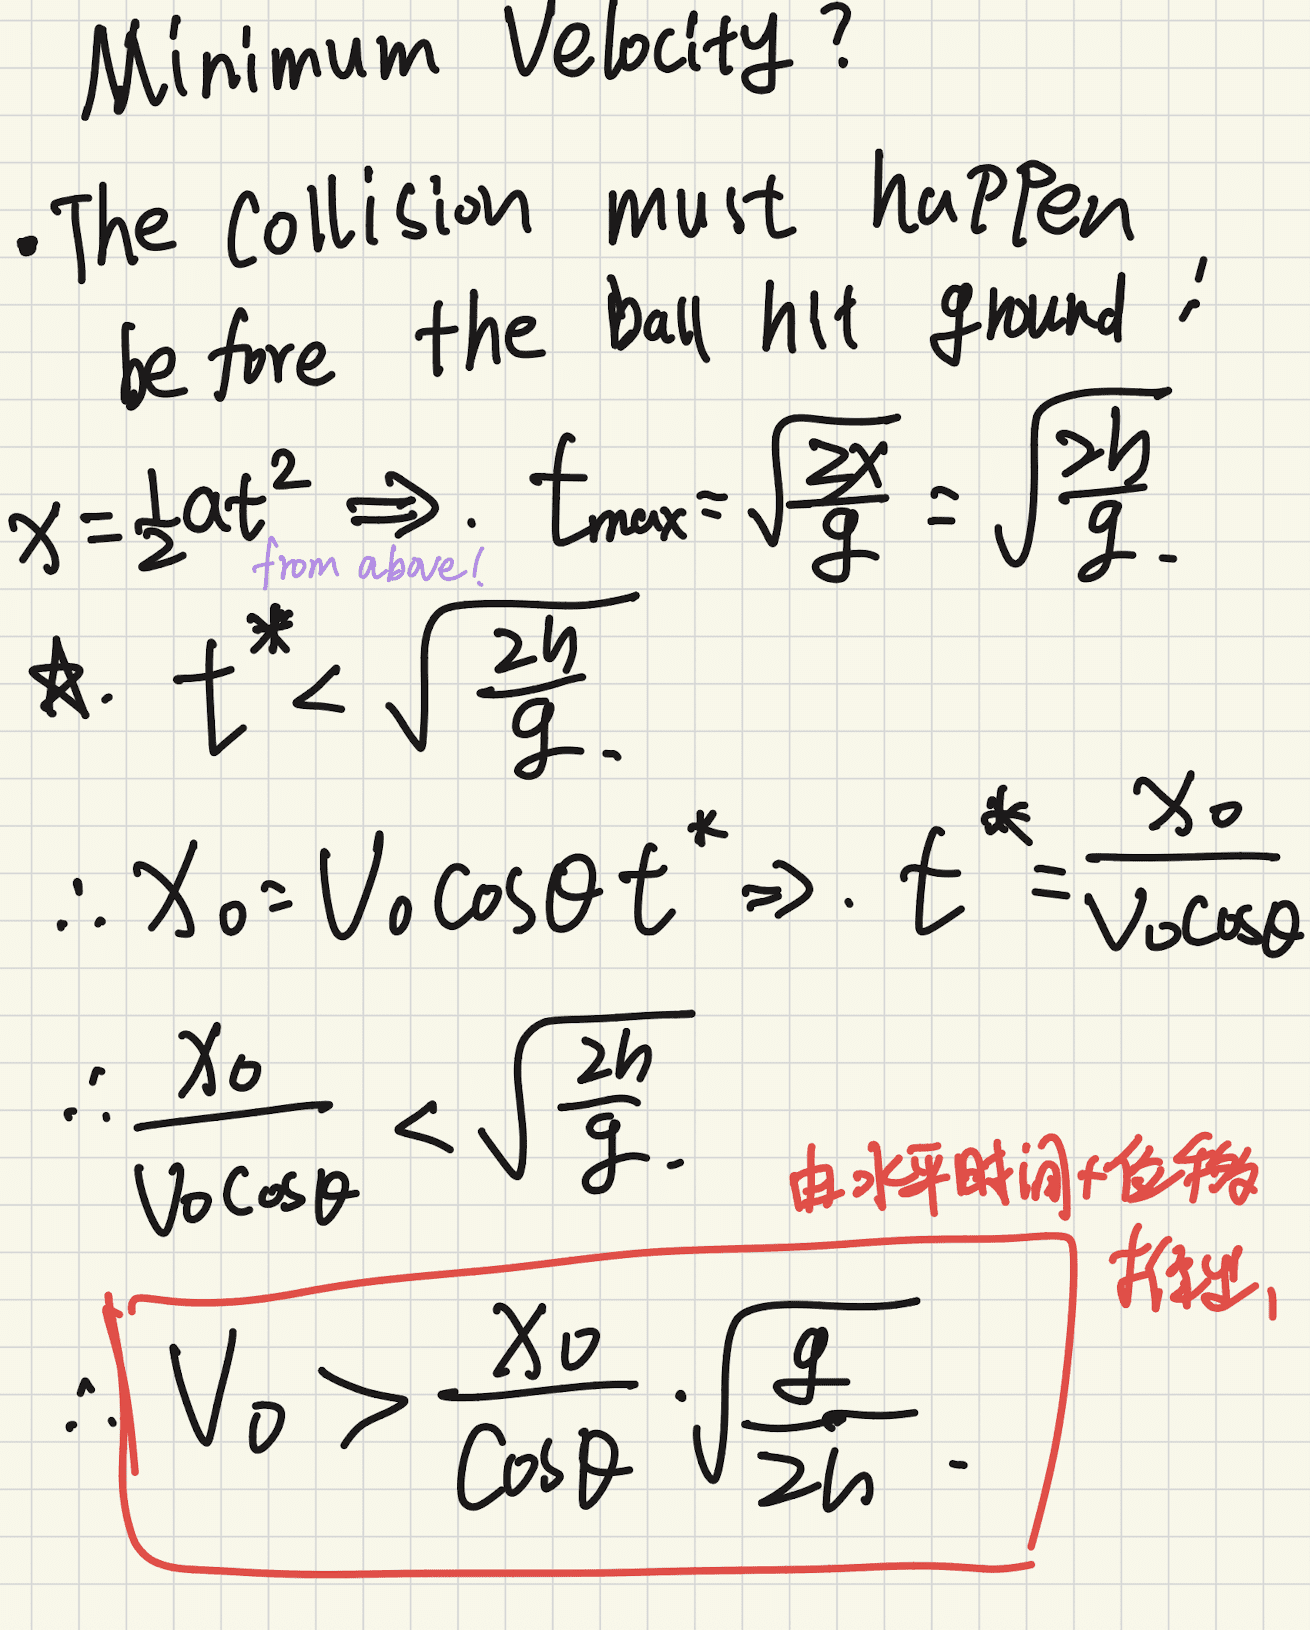 Minimum Velocity?
• The Collision must happen
before the ball hit ground!
x = 1/2 at² ⇒. t_max = √(2x/g) = √(2h/g).
from above!
☆. t* < √(2h/g).
∴ x₀ = V₀ cosθ t* ⇒. t* = x₀/(V₀cosθ)
∴ x₀/(V₀cosθ) < √(2h/g).
由水平时间+位移
推出,
∴ V₀ > x₀/cosθ · √(g/2h).